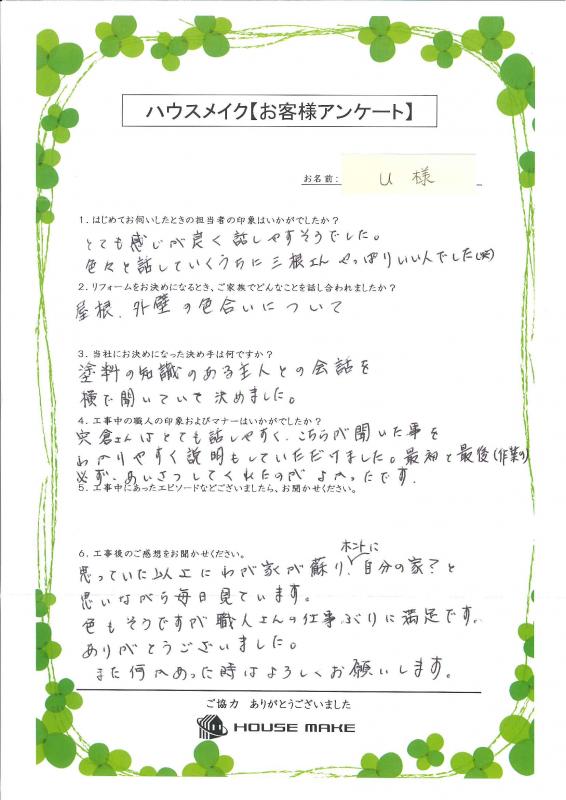 ハウスメイク【お客様アンケート】
お名前: U 様
1. はじめてお伺いしたときの担当者の印象はいかがでしたか？
とても感じが良く話しやすそうでした。
色々と話していくうちに三根さんやっぱりいい人でした(笑)
2. リフォームをお決めになるとき、ご家族でどんなことを話し合われましたか？
屋根、外壁の色合いについて
3. 当社にお決めになった決め手は何ですか？
塗料の知識のある主人との会話を
横で聞いていて決めました。
4. 工事中の職人の印象およびマナーはいかがでしたか？
宍倉さんはとても話しやすく、こちらが聞いた事を
わかりやすく説明もしていただけました。最初と最後(作業の)
必ず、あいさつしてくれたのがよかったです.
5. 工事中にあったエピソードなどございましたら、お聞かせください。
6. 工事後のご感想をお聞かせください。
思っていた以上にわが家が蘇り、ホントに自分の家？と
思いながら毎日見ています。
色もそうですが職人さんの仕事ぶりに満足です。
ありがとうございました。
また何かあった時はよろしくお願いします。
ご協力 ありがとうございました
HOUSE MAKE